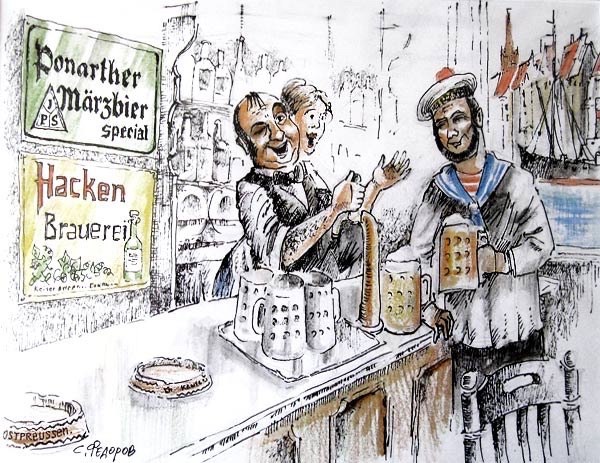 Ponarther
Märzbier
JPS
special
Hacken
Brauerei
OSTPREUSSEN.
С. ФЕДОРОВ